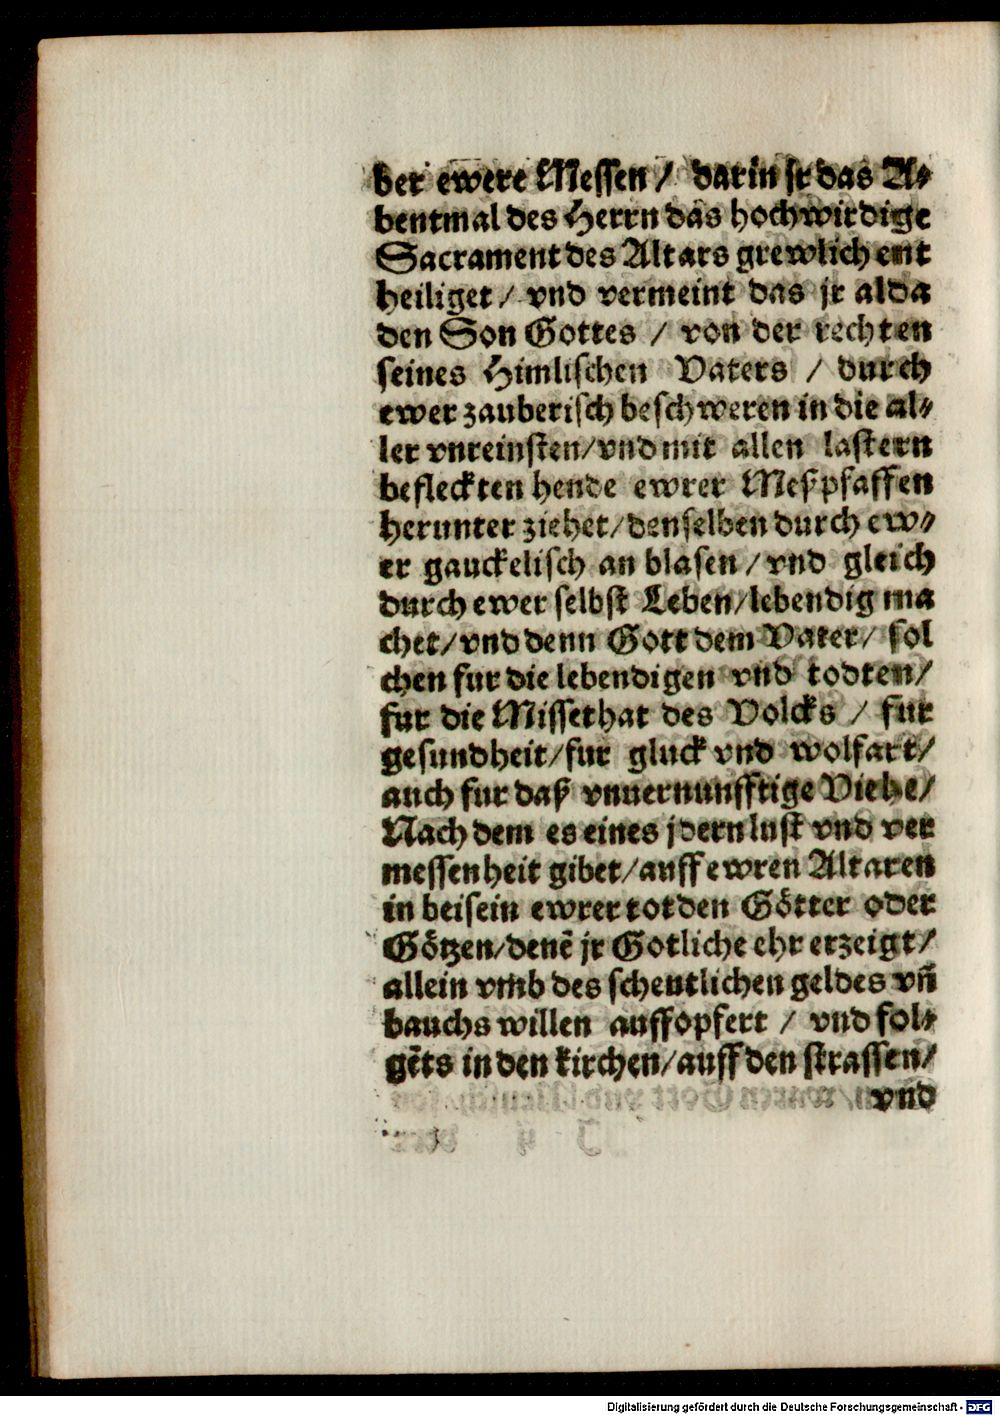 ber ewere Messen / darin jr das A⸗
bentmal des Herrn das hochwirdige
Sacrament des Altars grewlich ent
heiliget / vnd vermeint das jr alda
den Son Gottes / von der rechten
seines Himlischen Vaters / durch
ewer zauberisch beschweren in die al⸗
ler vnreinsten/vnd mit allen lastern
befleckten hende ewrer Meßpfaffen
herunter ziehet/denselben durch ew⸗
er gauckelisch an blasen/vnd gleich
durch ewer selbst Leben/lebendig ma
chet/vnd denn Gott dem Vater/ sol
chen fur die lebendigen vnd todten/
fur die Missethat des Volcks / fur
gesundheit/fur gluck vnd wolfart/
auch fur daß vnuernunfftige Viehe/
Nach dem es eines jdern lust vnd ver
messenheit gibet/auff ewren Altaren
in beisein ewrer totden Götter oder
Götzen/denē jr Gotliche ehr erzeigt/
allein vmb des schentlichen geldes vñ
bauchs willen auffopfert / vnd fol⸗
gēts in den kirchen/auff den strassen/
vnd
Digitalisierung gefördert durch die Deutsche Forschungsgemeinschaft - DFG